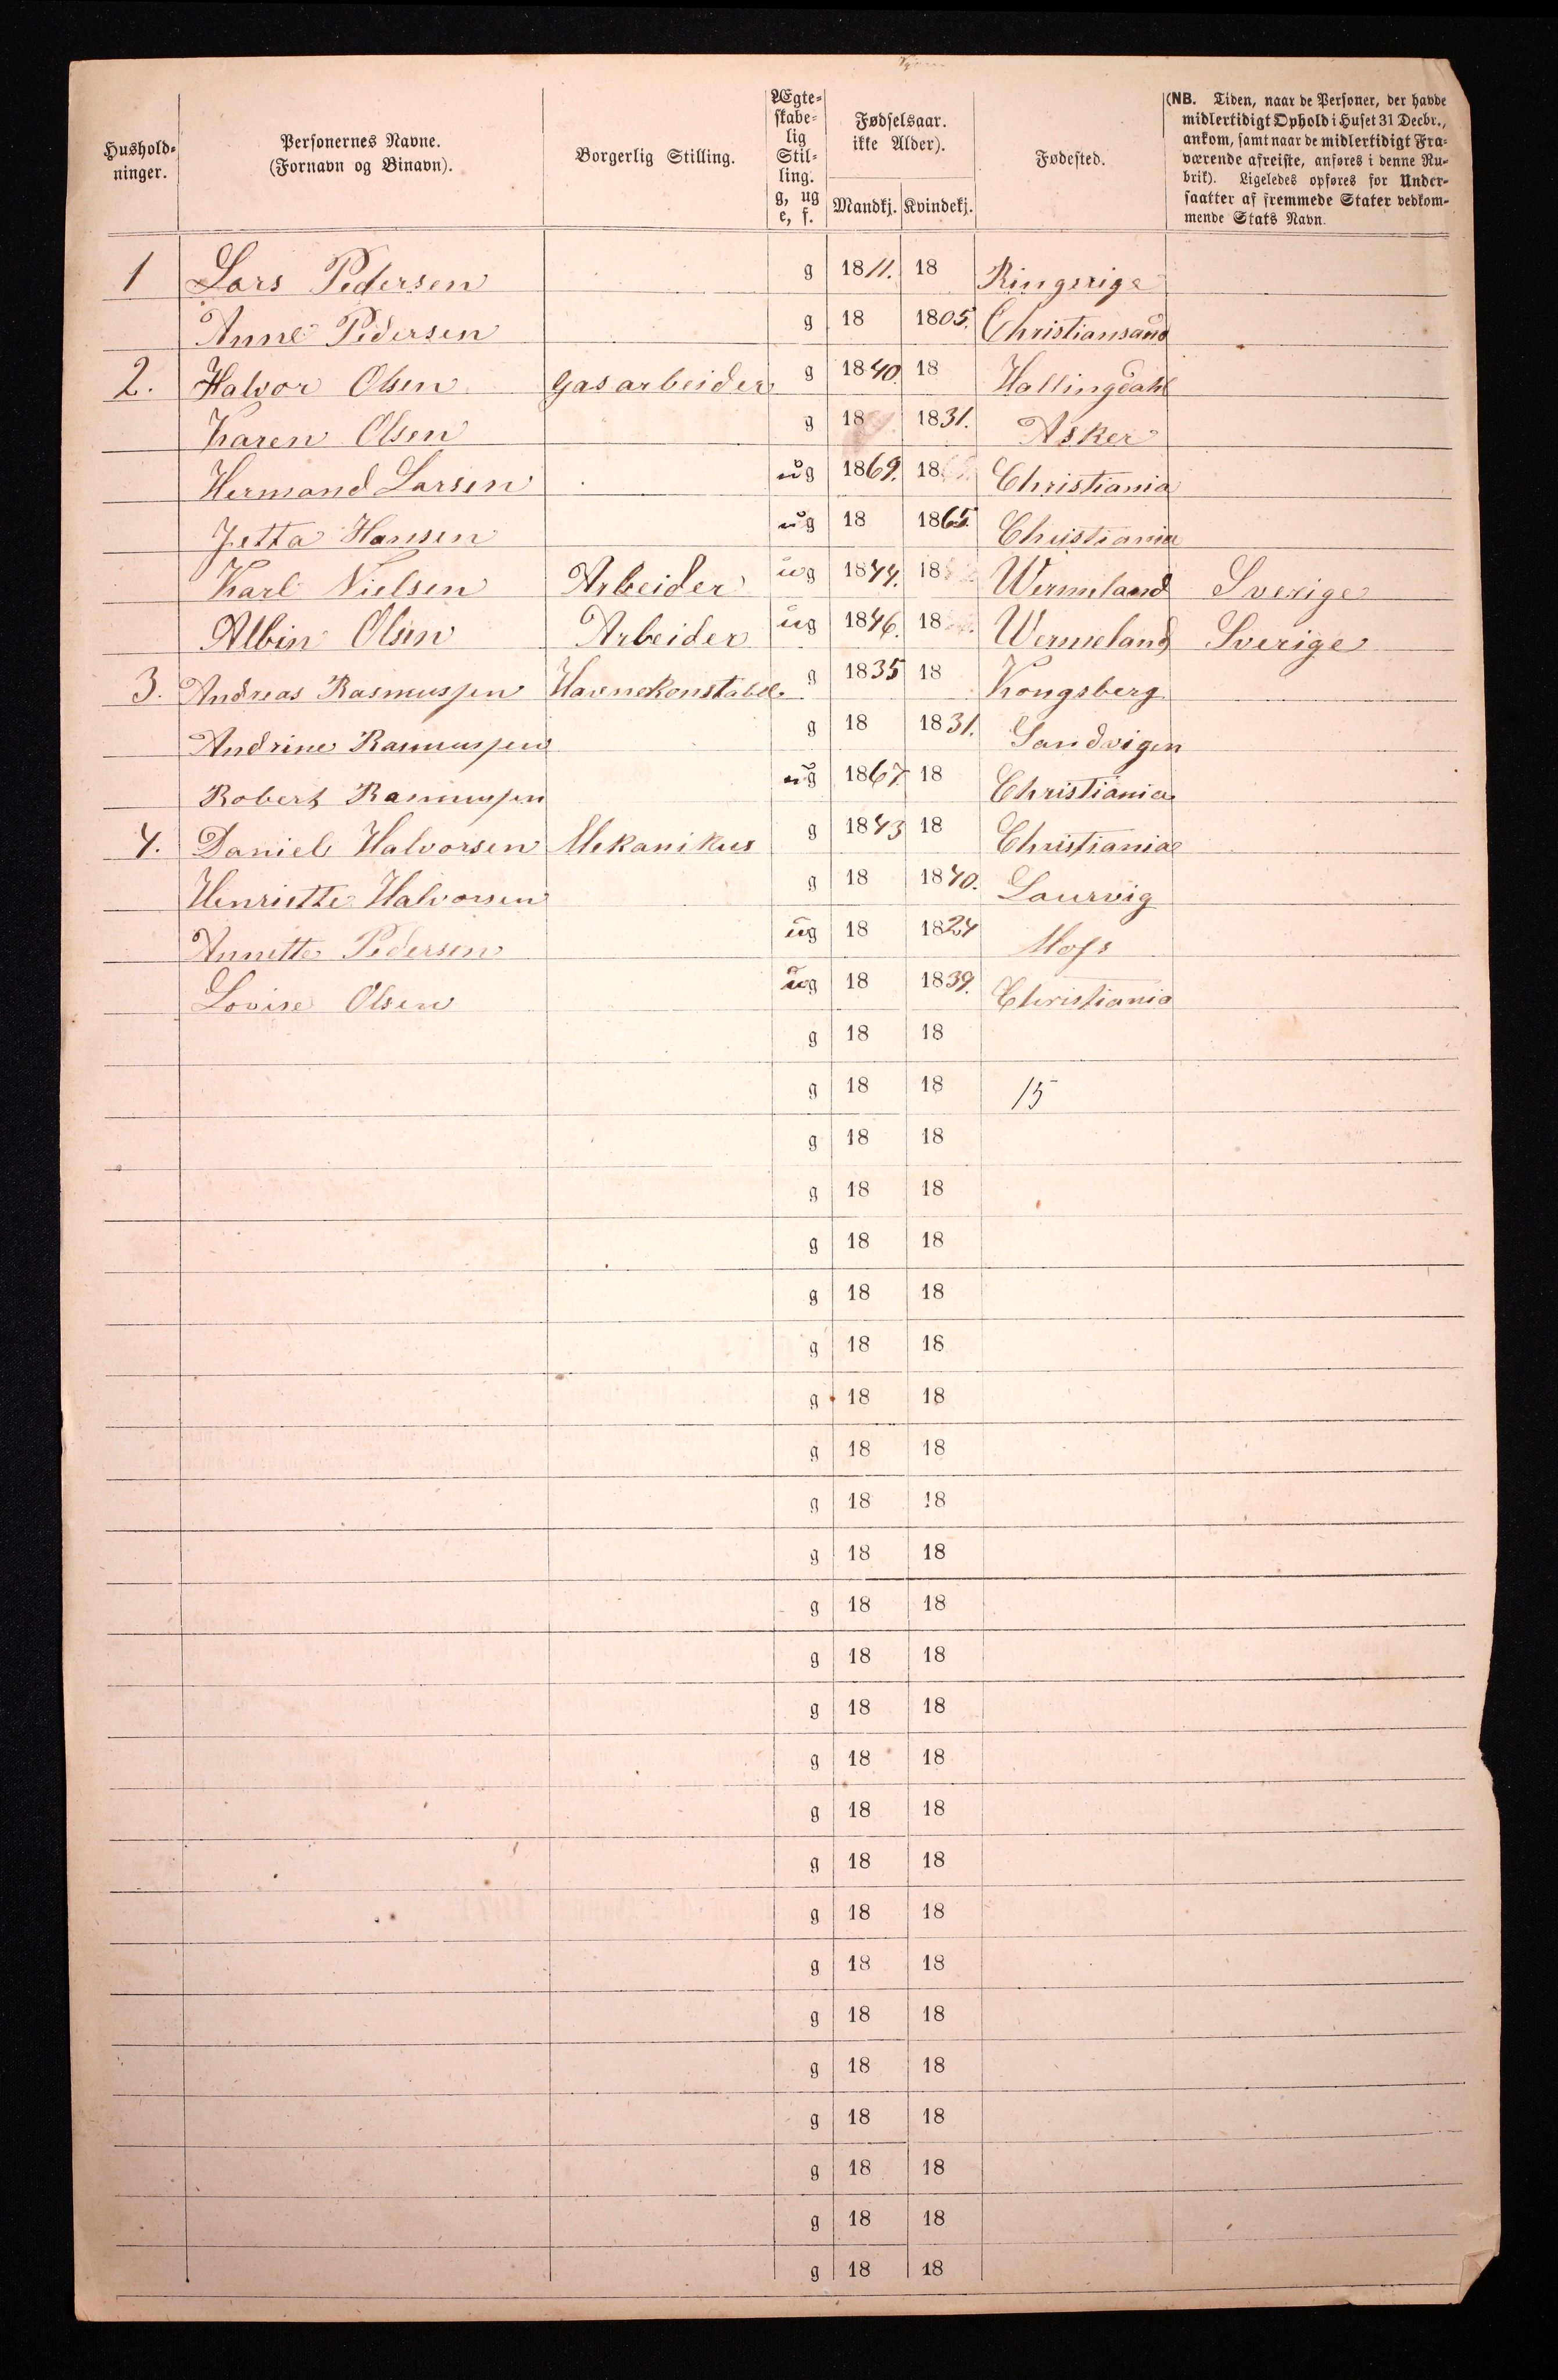 Hushold-
ninger.
Personernes Navne.
(Fornavn og Binavn).
Borgerlig Stilling.
Ægte-
skabe-
lig
Stil-
ling.
g, ug
e, f.
Fødselsaar.
ikke Alder).
Mandkj. Kvindekj.
Fødested.
(NB. Tiden, naar de Personer, der havde
midlertidigt Ophold i Huset 31 Decbr.,
ankom, samt naar de midlertidigt Fra-
værende afreiste, anføres i denne Ru-
brik). Ligeledes opføres for Under-
saatter af fremmede Stater vedkom-
mende Stats Navn.
1 Lars Pedersen g 1811. 18 Ringerige
Anne Pedersen g 18 1805. Christiansand
2. Halvor Olsen Gasarbeider g 1840. 18 Hallingdahl
Karen Olsen g 18 1831. Asker
Hermand Larsen ug 1869. 18 Christiania
Jetta Hansen ug 18 1865. Christiania
Karl Nielsen Arbeider ug 1844. 18 Wermeland Sverige
Albin Olsen Arbeider ug 1846. 18 Wermeland Sverige
3. Andreas Rasmussen Havnekonstabel g 1835 18 Kongsberg
Andrine Rasmussen g 18 1831. Sandvigen
Robert Rasmussen ug 1867. 18 Christiania
4. Daniel Halvorsen Mekanikus g 1843 18 Christiania
Henriette Halvorsen g 18 1840. Laurvig
Annette Pedersen ug 18 1824 Moss
Lovise Olsen ug 18 1839. Christiania
g 18 18
g 18 18 15
g 18 18
g 18 18
g 18 18
g 18 18
g 18 18
g 18 18
g 18 18
g 18 18
g 18 18
g 18 18
g 18 18
g 18 18
g 18 18
g 18 18
g 18 18
g 18 18
g 18 18
g 18 18
g 18 18
g 18 18
g 18 18
g 18 18
g 18 18